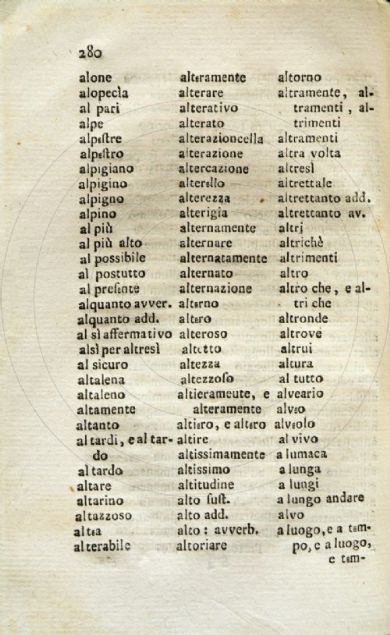 280
alone
alopecìa
al pari
alpe
alpestre
alpestro
alpigiano
alpigino
alpigno
alpino
al più
al più alto
al possibile
al postutto
al presente
alquanto avver.
alquanto add.
al sì affermativo
alsì per altresì
al sicuro
altalena
altaleno
altamente
altanto
al tardi, e al tar-
do
al tardo
altare
altarino
altazzoso
altea
alterabile
alteramente
alterare
alterativo
alterato
alterazioncella
alterazione
altercazione
alterello
alterezza
alterigia
alternamente
alternare
alternatamente
alternato
alternazione
alterno
altero
alteroso
altetto
altezza
altezzoso
altierameute, e
alteramente
altiero, e altero
altire
altissimamente
altissimo
altitudine
alto sust.
alto add.
alto: avverb.
altoriare
altorno
altramente, al-
tramenti, al-
trimenti
altramenti
altra volta
altresì
altrettale
altrettanto add.
altrettanto av.
altri
altrichè
altrimenti
altro
altro che, e al-
tri che
altronde
altrove
altrui
altura
al tutto
alveario
alveo
alveolo
al vivo
a lumaca
a lunga
a lungi
a lungo andare
alvo
a luogo, e a tem-
po, e a luogo,
e tem-